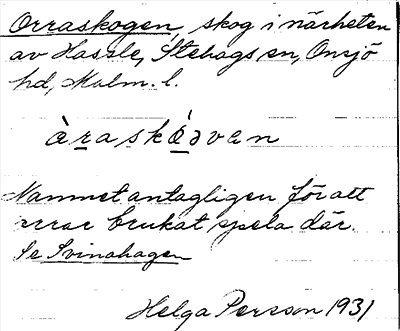 Orraskogen, skog i närheten
av Hassle, Stehags sn, Onsjö
hd, Malm. l.
àraskóavan
Namnet antagligen för att
orrar brukat spela där.
Se Svinahagen
Helga Persson 1931